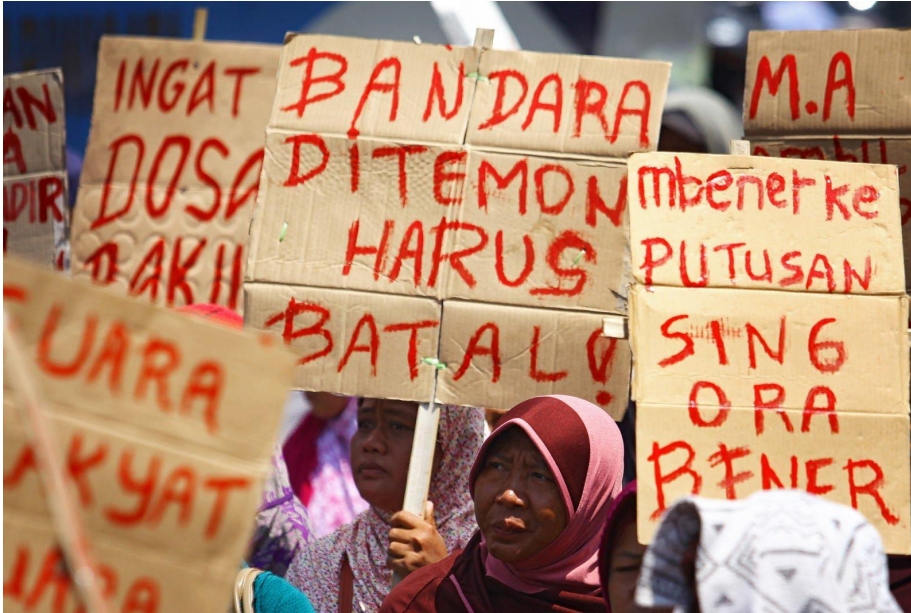 INGAT
DOSA
BANDARA
DITEMON
HARUS
BATAL!
M.A
mbenerke
PUTUSAN
SING
ORA
BENER
UARA
AKYAT